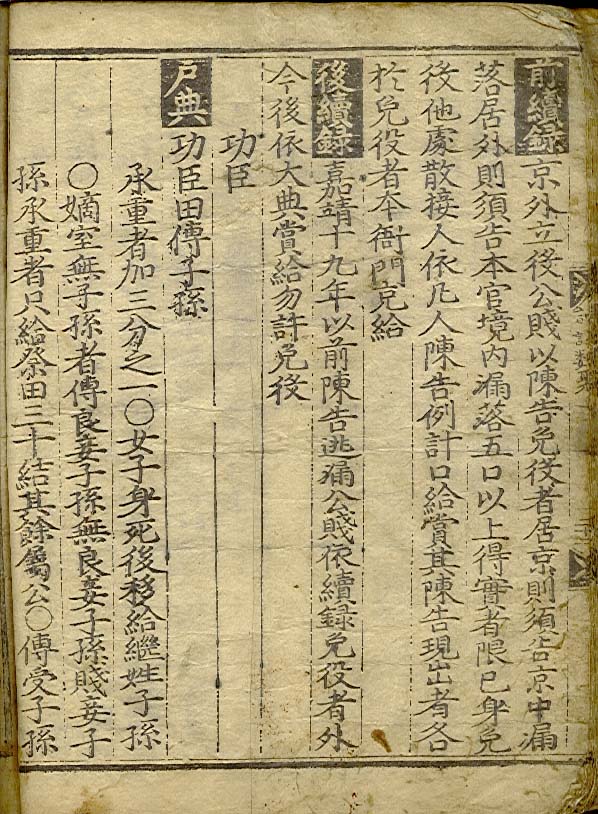 前續錄 京外立後公賤以陳告免役者居京則須告京中漏
落居外則須告本官境內漏落五口以上得實者限已身免
後他處散接人依凡人陳告例計口給賞其陳告現出者各
於免役者本衙門充給
後續錄 嘉靖十九年以前陳告逃漏公賤依續錄免役者外
今後依大典賞給勿許免役
功臣
戶典 功臣田傳子孫
承重者加三分之一〇女子身死後移給繼姓子孫
〇嫡室無子孫者傳良妾子孫無良妾子孫賤妾子
孫承重者只給祭田三十結其餘屬公〇傳受子孫